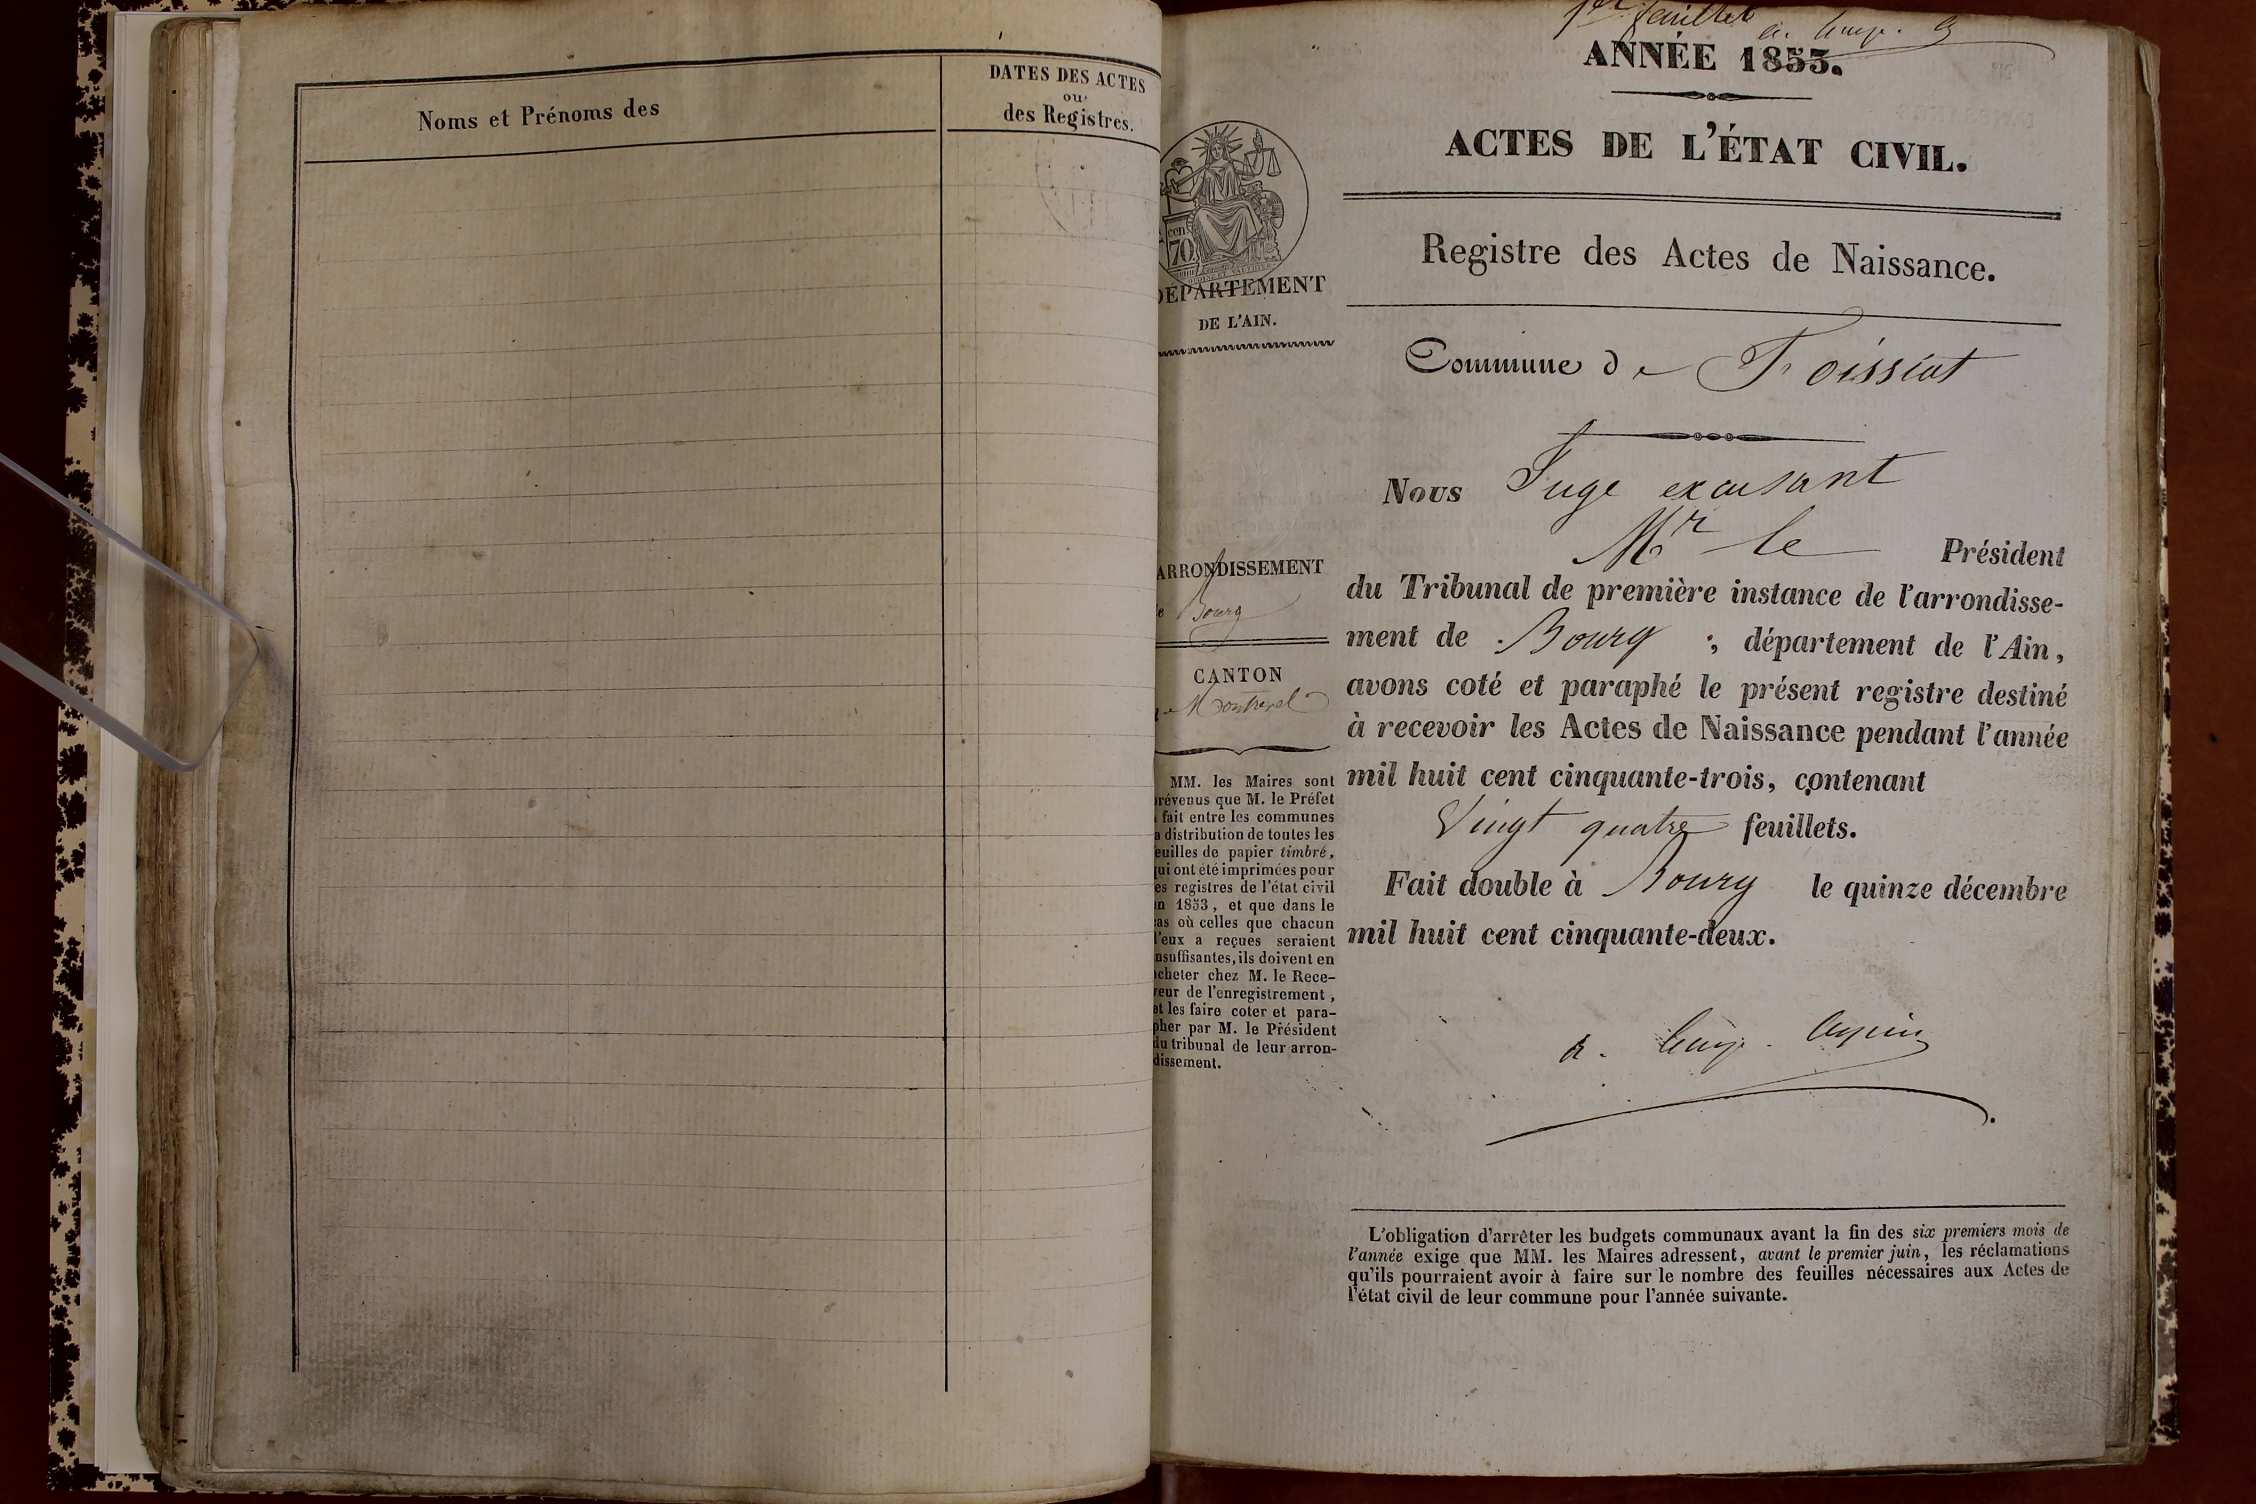 Noms et Prénoms des
DATES DES ACTES
ou
des Registres.
1er feuillet
ANNÉE 1853.
ACTES DE L'ÉTAT CIVIL.
Registre des Actes de Naissance.
cen
70
DÉPARTEMENT
DE L'AIN.
Commune de Foissiat
Nous Juge excusant
Mr le Président
du Tribunal de première instance de l'arrondisse-
ment de Bourg, département de l'Ain,
avons coté et paraphé le présent registre destiné
à recevoir les Actes de Naissance pendant l'année
mil huit cent cinquante-trois, contenant
Vingt quatre feuillets.
Fait double à Bourg le quinze décembre
mil huit cent cinquante-deux.
ARRONDISSEMENT
de Bourg
CANTON
de Montrevel
MM. les Maires sont
prévenus que M. le Préfet
a fait entre les communes
la distribution de toutes les
feuilles de papier timbré,
qui ont été imprimées pour
les registres de l'état civil
en 1853, et que dans le
cas où celles que chacun
d'eux a reçues seraient
insuffisantes, ils doivent en
acheter chez M. le Rece-
veur de l'enregistrement,
et les faire coter et para-
pher par M. le Président
du tribunal de leur arron-
dissement.
L'obligation d'arrêter les budgets communaux avant la fin des six premiers mois de
l'année exige que MM. les Maires adressent, avant le premier juin, les réclamations
qu'ils pourraient avoir à faire sur le nombre des feuilles nécessaires aux Actes de
l'état civil de leur commune pour l'année suivante.